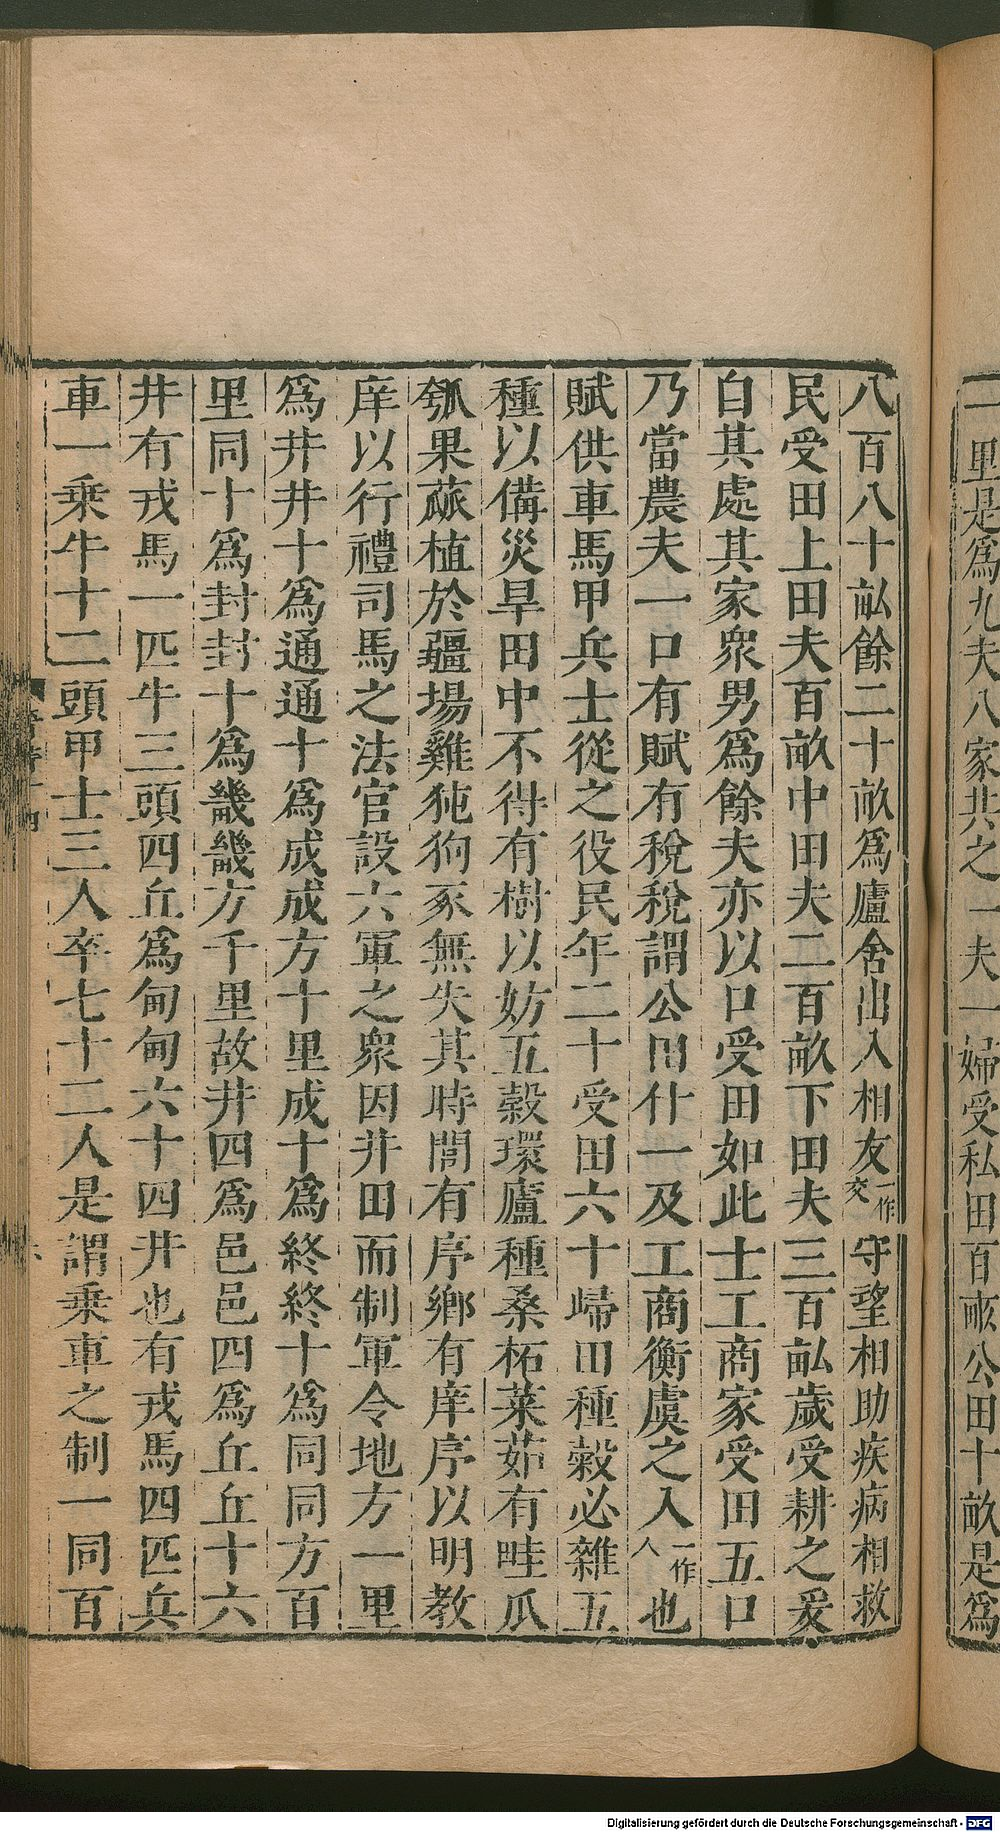 一里是爲九夫八家共之一夫一婦受私田百畝公田十畝是爲
八百八十畝餘二十畝爲廬舍出入相友一作交守望相助疾病相救
民受田上田夫百畝中田夫二百畝下田夫三百畝歲受耕之爰
自其處其家衆男爲餘夫亦以口受田如此士工商家受田五口
乃當農夫一口有賦有稅稅謂公田什一及工商衡虞之入一作人也
賦供車馬甲兵士從之役民年二十受田六十歸田種穀必雜五
種以備災旱田中不得有樹以妨五穀環廬種桑柘菜茹有畦瓜
瓠果蓏植於疆場雞狗豕無失其時閭有序鄉有庠序以明教
庠以行禮司馬之法官設六軍之衆因井田而制軍令地方一里
爲井井十爲通通十爲成成方十里成十爲終終十爲同同方百
里同十爲封封十爲畿畿方千里故井四爲邑邑四爲丘丘十六
井有戎馬一匹牛三頭四丘爲甸甸六十四井也有戎馬四匹兵
車一乘牛十二頭甲士三人卒七十二人是謂乘車之制一同百
Digitalisierung gefördert durch die Deutsche Forschungsgemeinschaft - DFG